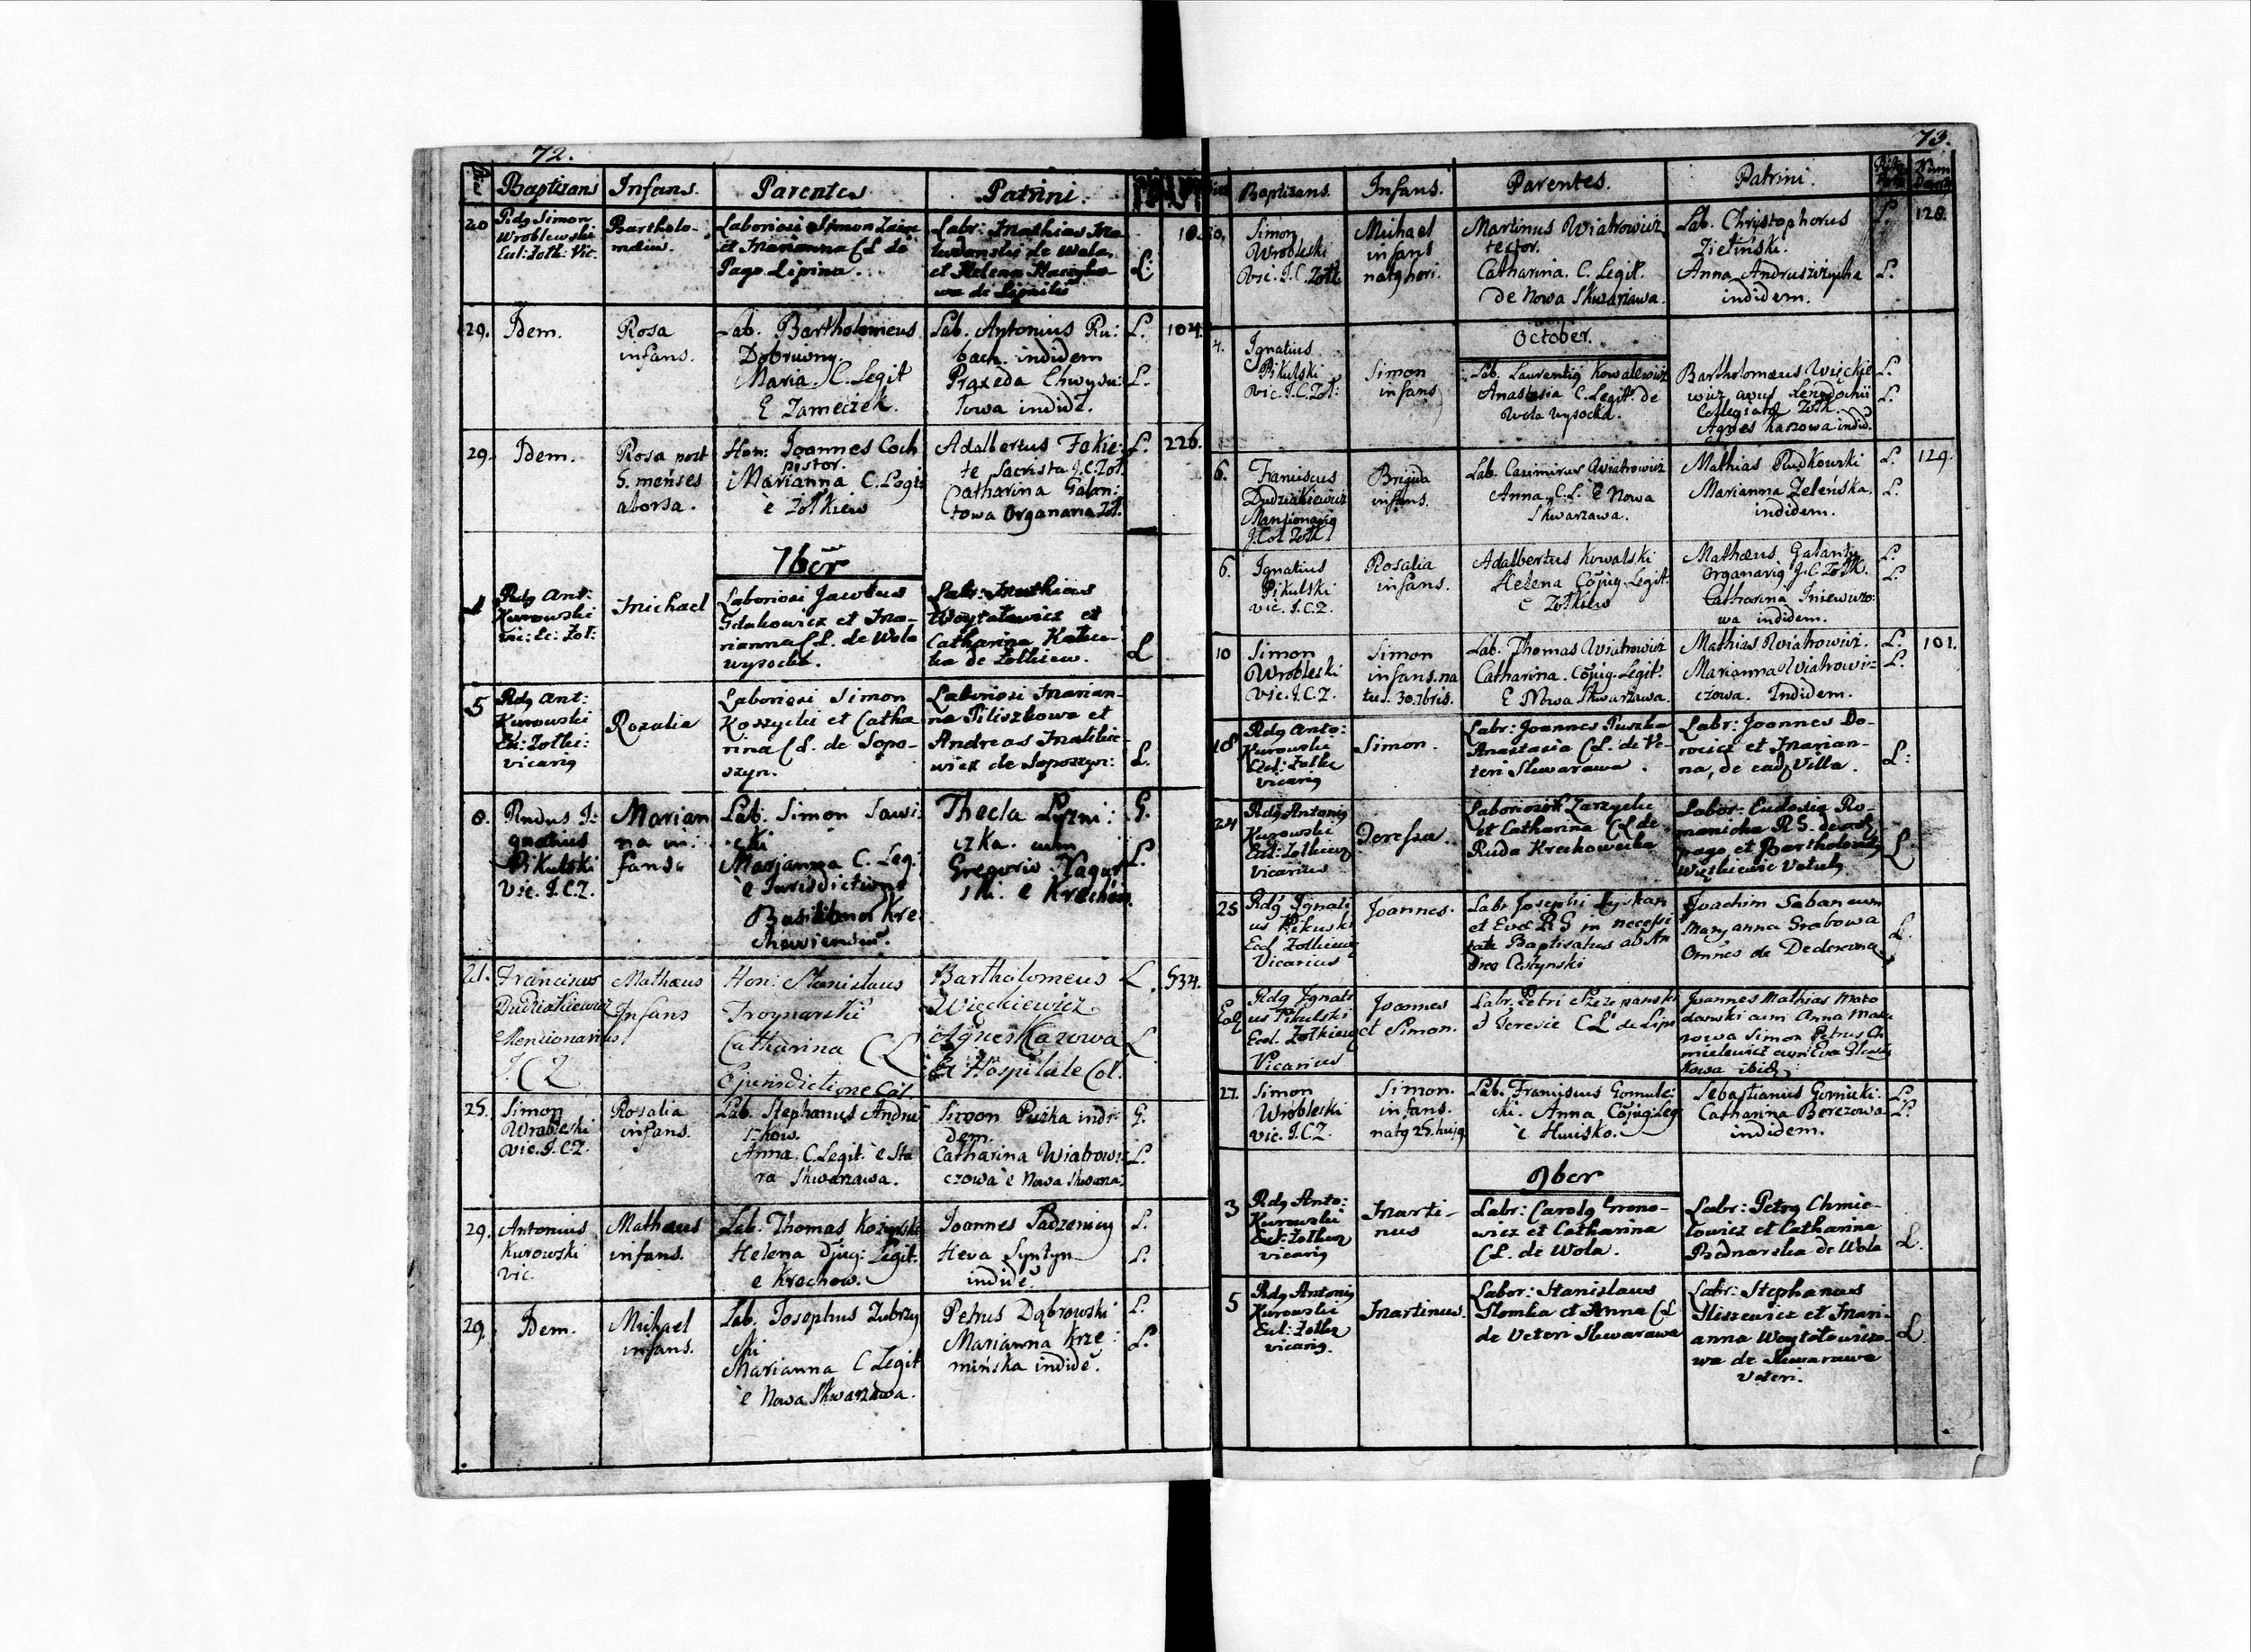 72.
Die Baptisans Infans. Parentes Patrini.
20 Rdq Simon Wroblewski Ecl: Zolk: Vic.
Bartholo-
maeus.
Laboriosi Simon
et Marianna CL de
Pago Lipina.
Labr: Mathias Ma-
de Wola,
et Helena
L:
10
29. Idem.
Rosa
infans.
Lab. Bartholomeus
Dobruony.
Maria. C. Legit
E Zameczek.
Lab. Antonius Ru:
bach. indidem
Praxeda Chwysu:
towa indid.
L.
L.
104.
29. Idem.
Rosa post
S. menses
aborsa.
Hon: Joannes Coch
pistor.
Marianna C. Legi:
è Zołkiew
Adalbertus Fekie:
te Sacrista J.C.Zoł.
Catharina Galan:
towa Organaria Zoł.
L.
226.
7ber
4 Rdq Ant:
Kurowski
vic: Ec: Zol:
Michael
Laboriosi Jacobus
Gdakowicz et Ma-
rianna CL. de Wola
wysocka.
Labr: Mathias
Woytalewicz et
Catharina
de Zolkiew.
L
5 Rdq Ant:
Kurowski
Ecl: Zolki:
vicariq
Rozalia
Laboriosi Simon
Koszycki et Catha
rina CL. de Sopo-
szyn.
Laboriosi Marian-
na Piliszkowa et
Andreas
wicz de Soposzyn:
L.
8. Rndus I:
gnatius
Pikulski
Vic. I.C.Z.
Marian
na in:
fans.
Lab. Simon Sawi:
cki
Marjanna C. Leg:
è Jurisdictione
Thecla
czka. cum
Gregorio
ski. e Krechów.
G.
L.
21. Franciscus
Dudziakiewicz
Mencionarius
I. C Z
Mathaeus
Infans
Hon: Stanislaus
Troynarski
Catharina CL
E jurisdictione Col.
Bartholomeus
Więckiewicz
Agnes Kazowa
Ex Hospitale Col.
L.
L
534.
25. Simon
Wrobleski
vic. I.C.Z.
Rosalia
infans.
Lab. Stephanus Andru
szkow.
Anna. C. Legit. è Sta
ra Skwarzawa.
Simon Puszka indi-
dem.
Catharina Wiatrowi
czowa è Nowa Skwarza:
G.
L.
29. Antonius
Kurowski
vic.
Mathaeus
infans.
Lab. Thomas
Helena Cjug: Legit.
e Krechow.
Joannes
Heva Syntyn
indidē.
L.
L.
29. Idem.
Michael
infans.
Lab. Josephus Zubrzy
cki
Marianna C Legit
è Nowa Skwarzawa.
Petrus Dąbrowski
Marianna Krze:
mińska indidē.
L.
L.
73.
Baptisans. Infans. Parentes. Patrini.
Num
30. Simon
Wrobleski
Vic. I.C.Zołk
Michael
infans
natq heri.
Martinus Wiatrowicz
tector.
Catharina. C. Legit.
de Nowa Skwarzawa.
Lab. Chrystophorus
Zieliński.
Anna Andruszczycha
indidem.
L.
L.
128.
October.
4. Ignatius
Pikulski
vic. I.C.Zoł:
Simon
infans
Lab. Laurentiq Kowalewicz
Anastasia C. Legit. de
Wola wysocka.
Bartholomaeus Więckie
wicz
Zołk.
Agnes Kazowa indid.
L.
L.
6. Franciscus
Dudziakiewicz
Mansionariq
J. Col Zołk
Brigida
infans.
Lab. Casimirus Wiatrowicz
Anna C.L. è Nowa
Skwarzawa.
Mathias Rudkowski
Marianna Zeleńska.
indidem.
L.
L.
129.
6. Ignatius
Pikulski
vic. I.C.Z.
Rosalia
infans.
Adalbertus Kowalski
Helena Cōjug. Legit.
è Zołkiew
Mathaeus Galanty
Organariq J.C. Zołk.
Catharina
wa indidem.
L.
L.
10 Simon
Wrobleski
Vic. I.C.Z.
Simon
infans. na
tus. 30. 7bris.
Lab. Thomas Wiatrowicz
Catharina. Cōjug. Legit.
E Nowa Skwarzawa.
Mathias Wiatrowicz.
Marianna Wiatrowi=
czowa. Indidem.
L.
L.
101.
18 Rdq Anto:
Kurowski
Ecl: Zolk
vicariq
Simon.
Labr: Joannes Puszka
Anastasia CL. de Ve-
teri Skwarawa.
Labr: Joannes Do-
rocicz et Marian-
na, de eadq Villa.
L:
24 Rdq Antoniq
Kurowski
Ecl: Zolkiew
vicarius
Teressa.
Laboriosi Zarzycki
et Catharina CL de
Ruda Krechowecka
Labor: Eudosia Ro-
manicha R S. de
pago et Bartholomeus
L
25 Rdq Ignati
us Pikulski
Ecl Zolkiew
Vicarius
Joannes.
Labr Josephi
et Eva R S in necessi
tate Baptisatus ab An
drea
Joachim Saban cum
Maryanna Grabowa
Omnes de Dederowna
L.
Eadq Rdq Ignati
us Pikulski
Ecl. Zolkiew
Vicarius
Joannes
et Simon.
Labr. Petri Szczepanski
et Teresie CL de Lipi
Joannes Mathias
cum Anna
Simon Petrus Ch
mielewicz cum Eva
ibidq
27. Simon
Wrobleski
vic. I.C.Z.
Simon.
infans.
natq 25. hujq
Lab. Franciscus Gomule:
cki. Anna Cōjug: Leg
è Hucisko.
Sebastianus Gornicki.
Catharina Berezowa
indidem.
L.
L.
9ber
3 Rdq Anto:
Kurowski
Ecl: Zolkiew
vicariq
Marti-
nus
Labr: Carolq Grono-
wicz et Catharina
CL. de Wola.
Labr: Petrq Chmie-
lowicz et Catharina
Bednarska de Wola
L.
5 Rdq Antoniq
Kurowski
Ecl: Zolk
vicariq.
Martinus.
Labor: Stanislaus
Slomka et Anna CL
de Veteri Skwarawa
Labr: Stephanus
Iliszewicz et Mari-
anna Woytołowiczo-
wa de Skwarawa
Veteri.
L.